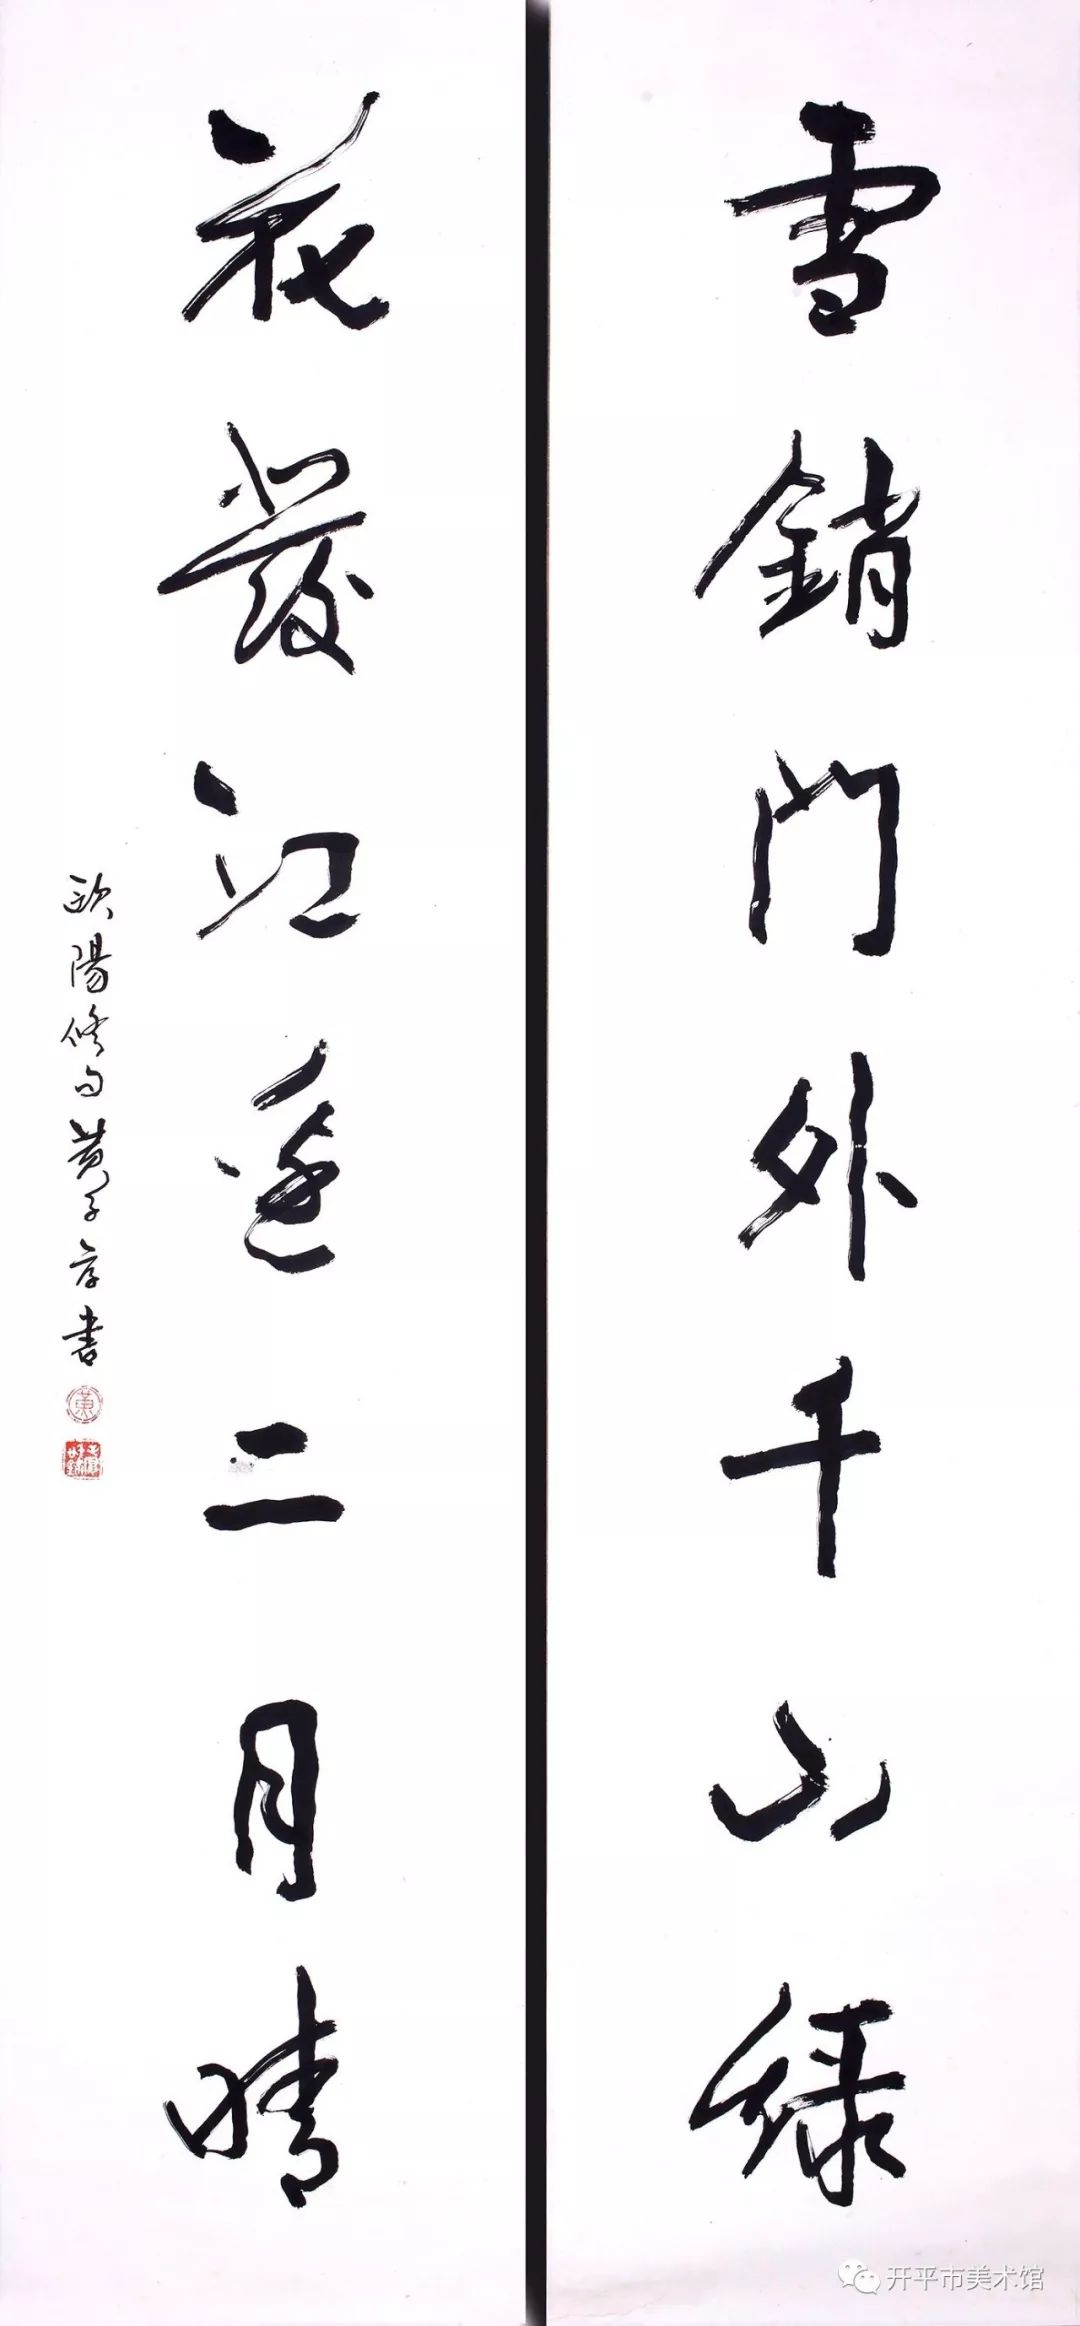 雪銷門外千山緑
花發江邊二月晴
歐陽修句黄子厚書
黄
开平市美术馆